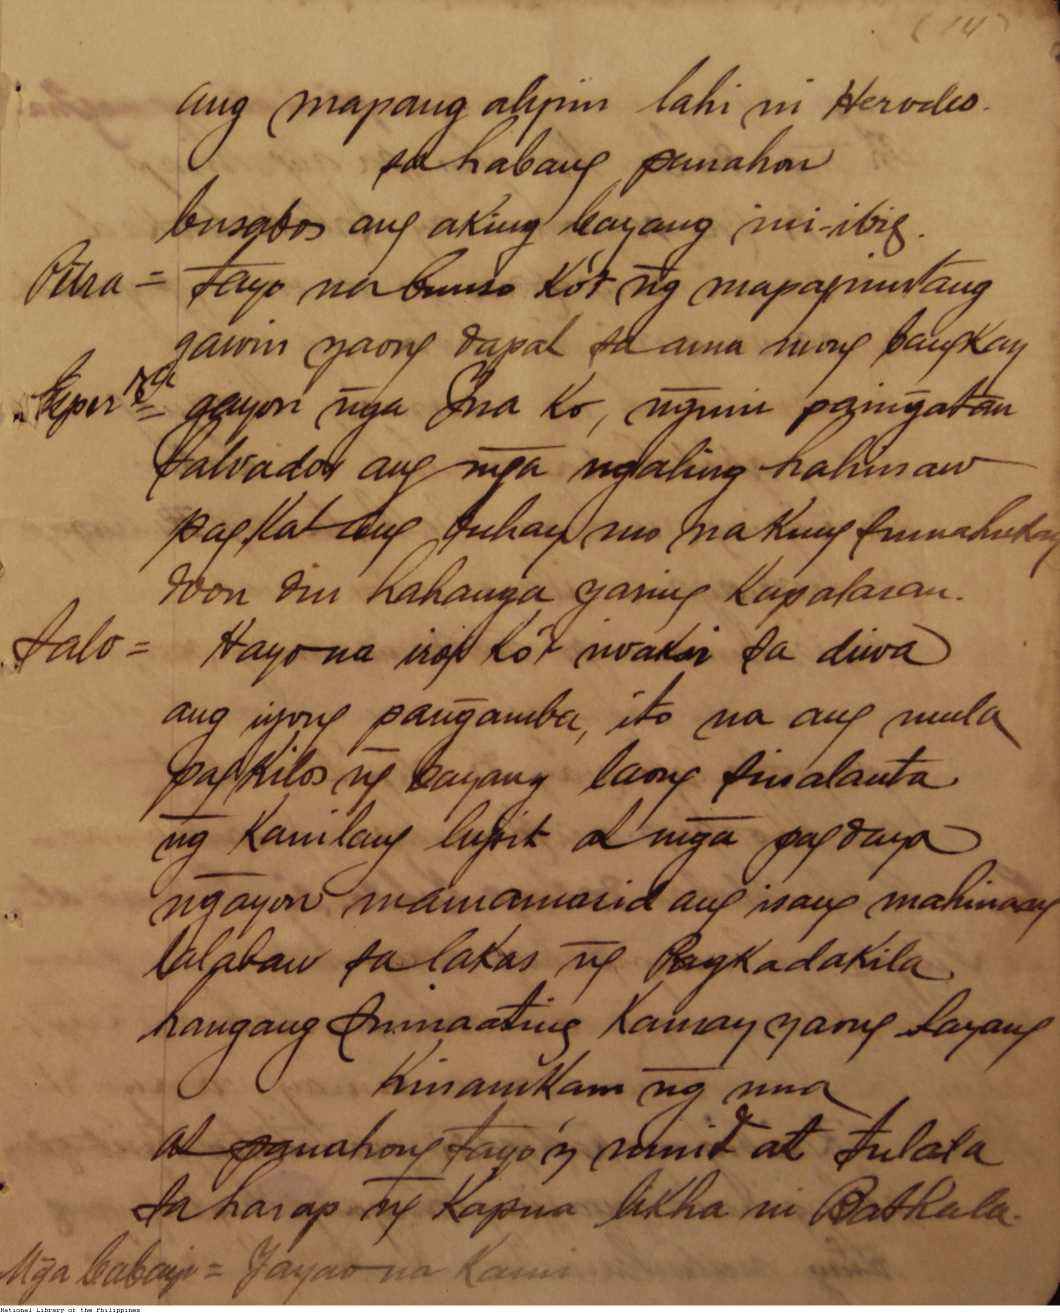 (14)
ang mapang alipin lahi ni Herodes.
sa habang panahon
busabos ang aking bayang ini-ibig.
Petra = Tayo na bunso Kó't n̄g mapapintang
gawin yaong dapat sa ama mong bangkay
gayon n̄ga Ina Ko, n̄guni pain̄gatan
Salvador ang m̄ga ngaling halimaw
pagkat ang buhay mo na Kung
doon din hahanga yaring Kapalaran.
Salv = Hayo na irog Kó't iwaksi sa diwa
ang iyong pan̄gamba, ito na ang mula
pagkilos n̄g bayang laong sinalanta
n̄g Kanilang lupit at m̄ga pagdaya
n̄gayon mamamasid ang isang mahinang
lalabaw sa lakas n̄g Pagkadakila
hangang Kamay yaong layang
Kinamkam n̄g una
at panahong tayo'y umid at tulala
sa harap n̄g Kapua likha ni Bathala.
M̄ga babayi = Yayao na Kami
National Library of the Philippines